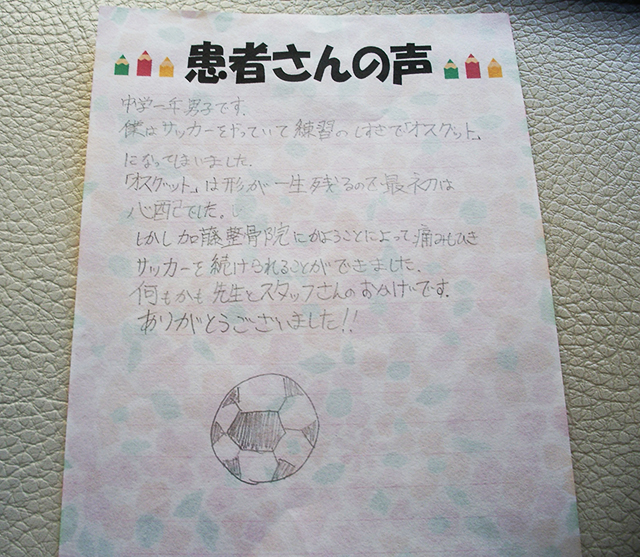 患者さんの声
中学一年男子です。
僕はサッカーをやっていて練習のしすぎで「オスグット」
になってしまいました。
「オスグット」は形が一生残るので最初は
心配でした。
しかし加藤整骨院にかようことによって痛みもひき
サッカーを続けられることができました。
何もかも先生とスタッフさんのおかげです。
ありがとうございました!!